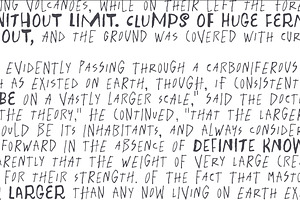 NG VOLCANOES, WHILE ON THEIR LEFT THE FOR
WITHOUT LIMIT. CLUMPS OF HUGE FERN
OUT, AND THE GROUND WAS COVERED WITH CUR
EVIDENTLY PASSING THROUGH A CARBONIFEROUS
H AS EXISTED ON EARTH, THOUGH, IF CONSISTENT
BE ON A VASTLY LARGER SCALE," SAID THE DOCT
THE THEORY," HE CONTINUED, "THAT THE LARGER
OULD BE ITS INHABITANTS, AND ALWAYS CONSIDER
FORWARD IN THE ABSENCE OF DEFINITE KNOW
ARENTLY THAT THE WEIGHT OF VERY LARGE CRE
FOR THEIR STRENGTH. OF THE FACT THAT MASTO
LARGER THAN ANY NOW LIVING ON EARTH EX